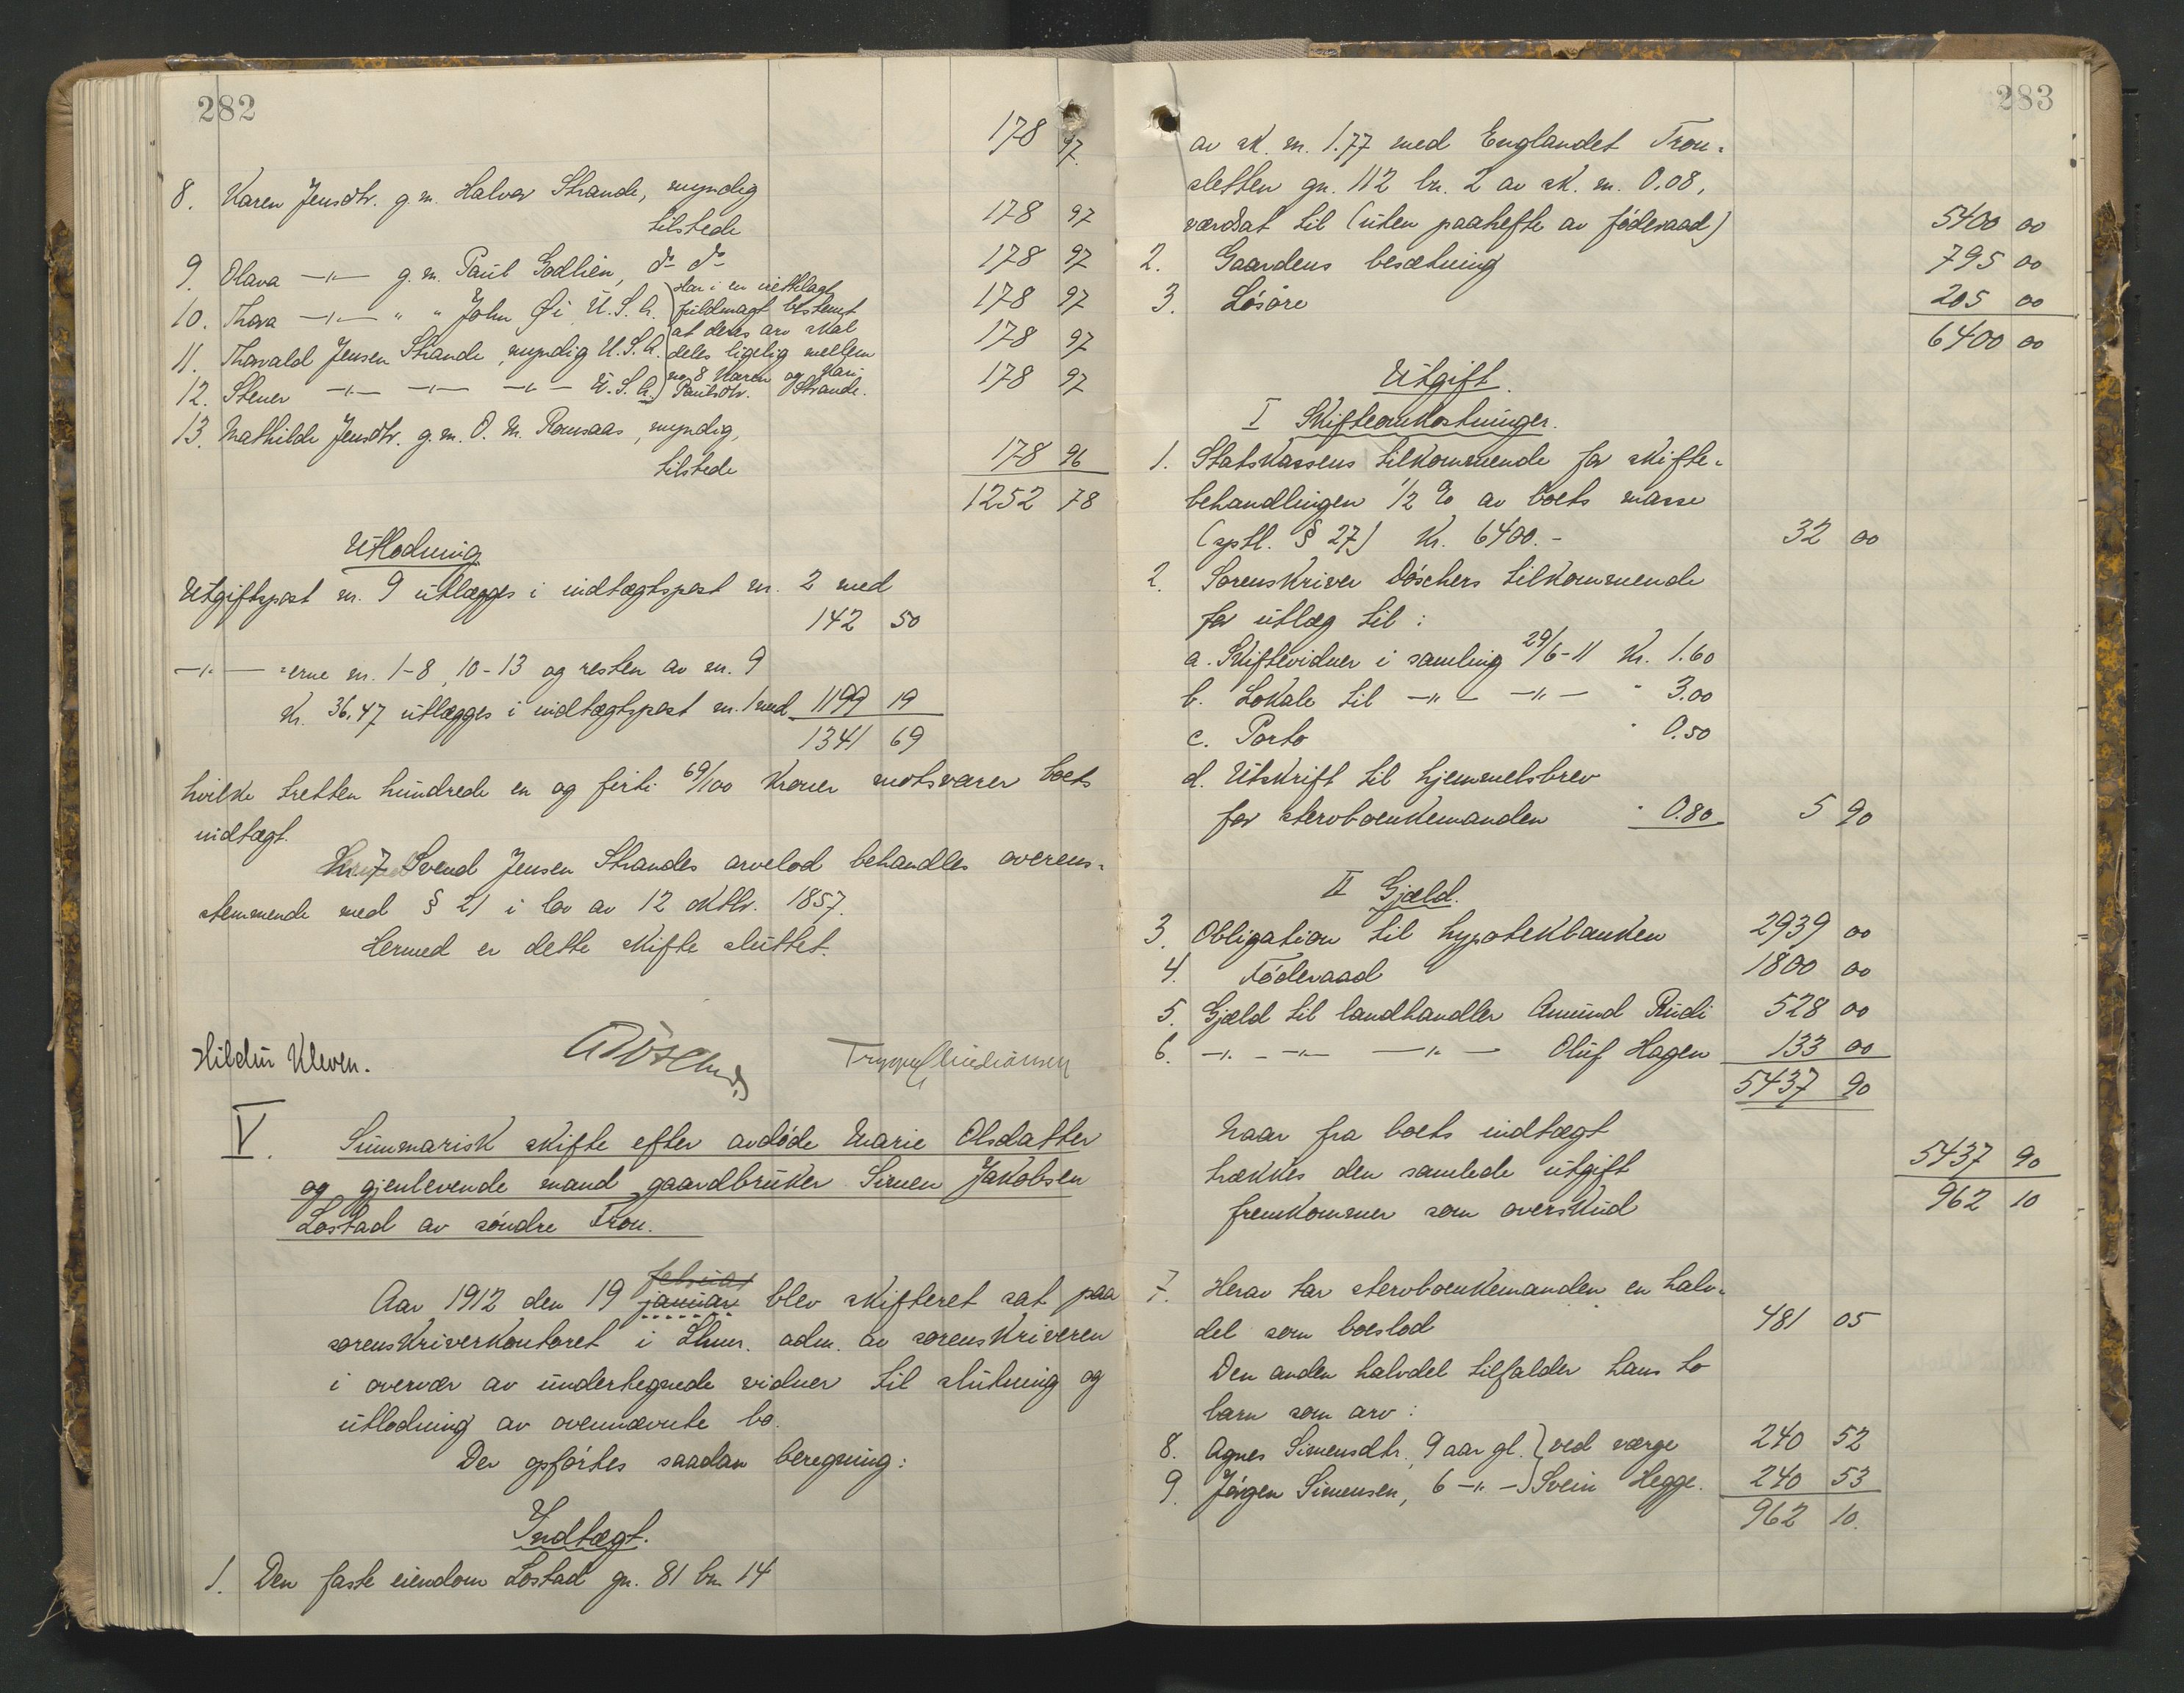 282
178 97
8. Karen Jensdtr. g. m. Halvor Strande, myndig
tilstede 178 97
9. Olava —"— g. m. Paul Godlien, do do 178 97
10. Thora —"— " " John Øi, U.S.A. 178 97
11. Thorvald Jensen Strande, myndig U.S.A. 178 97
12. Stener —"— —"— —"— U.S.A. 178 97
Har i en fremlagt
fuldmagt bestemt
at deres arv skal
deles ligelig mellem
no. 8 Karen og Mari
Paulsdtr. Strande.
13. Mathilde Jensdtr. g. m. O. M. Romsaas, myndig,
tilstede 178 96
1252 78
Utlodning
Utgiftspost nr. 9 utlægges i indtægtspost nr. 2 med
142 50
—"— erne nr. 1-8, 10-13 og resten av nr. 9
Kr. 36.47 utlægges i indtægtspost nr. 1 med 1199 19
1341 69
hvilke tretten hundrede en og firti 69/100 kroner motsvarer boets
indtægt.
Nr. 7 Svend Jensen Strandes arvelod behandles overens-
stemmende med § 21 i lov av 12 oktbr. 1857.
Hermed er dette skifte sluttet.
Hildur Kleven. Döscher
V. Summarisk skifte efter avdöde Marie Olsdatter
og gjenlevende mand gaardbruker Simen Jakobsen
Lostad av söndre Fron.
februar
Aar 1912 den 19 januar blev skifteret sat paa
sorenskriverkontoret i Lhmr. adm. av sorenskriveren
i overvær av undertegnede vidner til slutning og
utlodning av ovennævnte bo.
Der opförtes saadan beregning:
Indtægt.
1. Den faste eiendom Lostad gn. 81 bn. 14
283
av sk. m. 1.77 med Englandet Fron-
sletten gn. 112 bn. 2 av sk. m. 0,08,
værdsat til (uten paahefte av föderaad) 5400 00
2. Gaardens besætning 795 00
3. Lösöre 205 00
6400 00
Utgift.
I Skifteomkostninger.
1. Statskassens tilkommende for skifte-
behandlingen 1/2 % av boets masse
(sptl. § 27) Kr. 6400.- 32 00
2. Sorenskriver Döschers tilkommende
for utlæg til:
a. Skiftevidner i samling 29/6-11 Kr. 1.60
b. Lokale til —"— —"— " 3.00
c. Porto " 0.50
d. Utskrift til hjemmelsbrev
for stervboenkemanden " 0.80 5 90
II Gjæld.
3. Obligation til hypotekbanken 2939 00
4. Föderaad 1800 00
5. Gjæld til landhandler Amund Rudi 528 00
6. —"— —"— —"— Oluf Hagen 133 00
5437 90
Naar fra boets indtægt
trækkes den samlede utgift 5437 90
fremkommer som overskud 962 10
7. Herav tar stervboenkemanden en halv-
del som boeslod 481 05
Den anden halvdel tilfalder hans to
barn som arv:
8. Agnes Simensdtr., 9 aar gl. } ved værge 240 52
9. Jörgen Simensen, 6 —"— } Svein Hegge. 240 53
962 10.